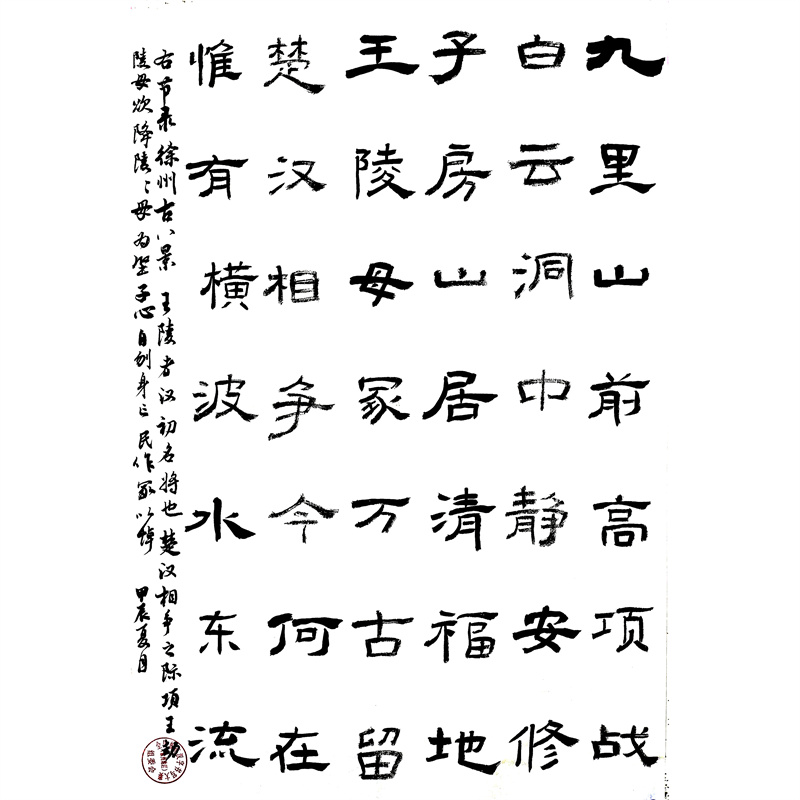 九里山前高项战
白云洞中静安修
子房山居清福地
王陵母冢万古留
楚汉相争今何在
惟有横波水东流
右节录徐州古八景 王陵者汉初名将也 楚汉相争之际项王劫
陵母欲降陵〻母为坚子心自刎身亡民作冢以悼 甲辰夏月